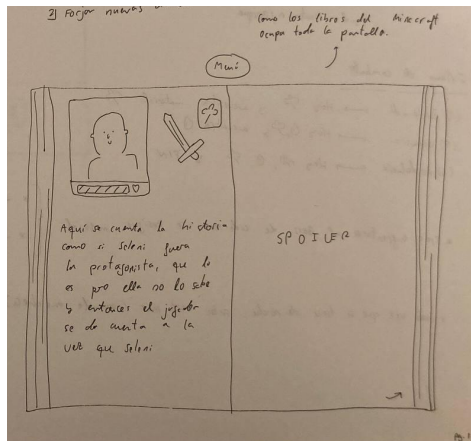 3) Forjar nuevas
Como los libros del Minecraft
ocupa toda la pantalla.
Menú
Aquí se cuenta la historia
como si Seleni fuera
la protagonista, que lo
es pro ella no lo sabe
y entonces el jugador
se da cuenta a la
vez que Seleni
SPOILER